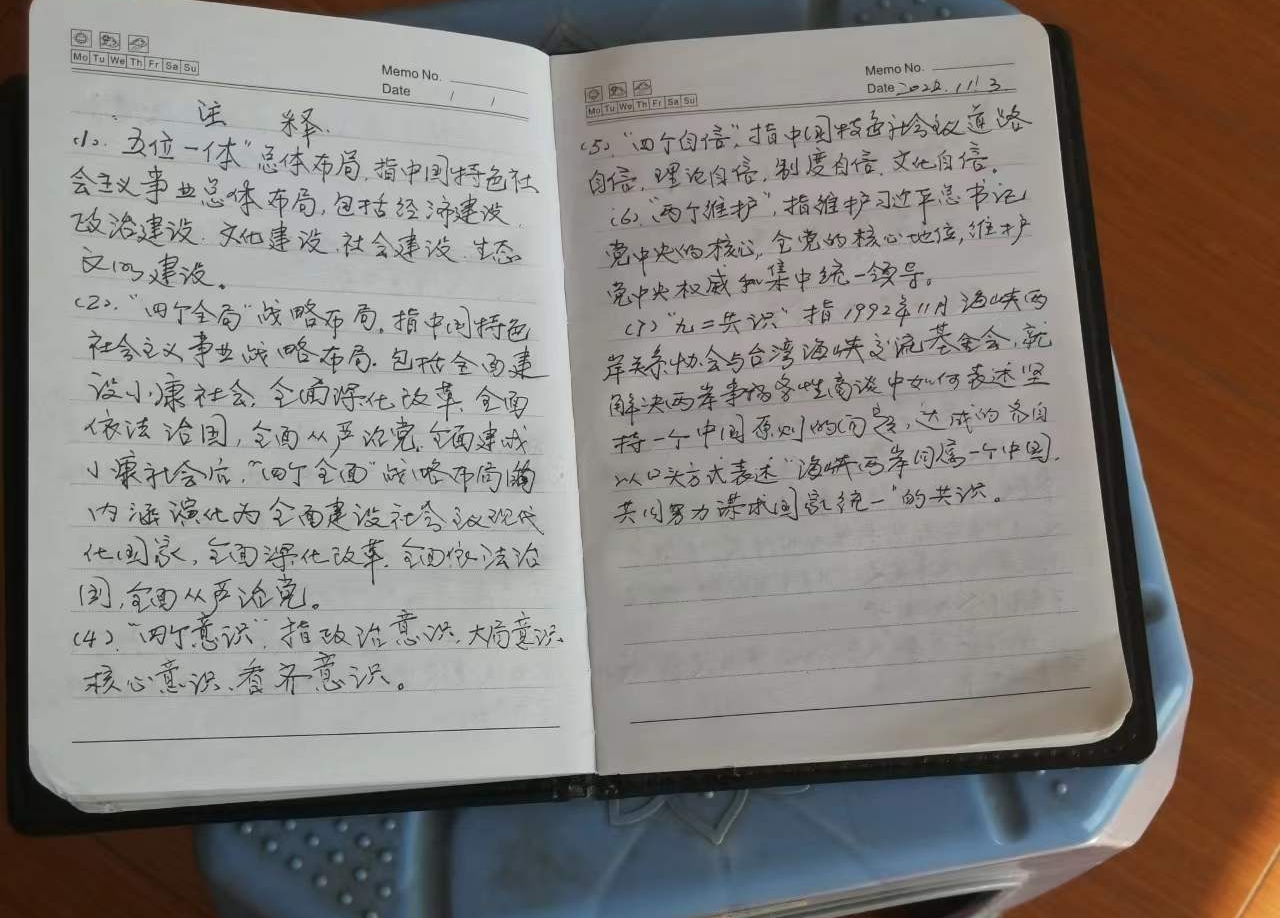 Mo Tu We Th Fr Sa Su
Memo No.
Date / /
注 释
(1). "五位一体"总体布局,指中国特色社
会主义事业总体布局,包括经济建设、
政治建设、文化建设、社会建设、生态
文明建设。
(2). "四个全局"战略布局。指中国特色
社会主义事业战略布局.包括全面建
设小康社会,全面深化改革,全面
依法治国,全面从严治党.全面建成
小康社会后,"四个全面"战略布局的
内涵演化为全面建设社会主义现代
化国家,全面深化改革.全面依法治
国,全面从严治党。
(4). "四个意识",指政治意识、大局意识、
核心意识、看齐意识。
Mo Tu We Th Fr Sa Su
Memo No.
Date 11 3
(5). "四个自信",指中国特色社会主义道路
自信,理论自信,制度自信,文化自信。
(6). "两个维护",指维护习近平总书记
党中央的核心,全党的核心地位,维护
党中央权威和集中统一领导。
(7) "九二共识"指1992年11月海峡两
岸关系协会与台湾海峡交流基金会,就
解决两岸事务性商谈中如何表述坚
持一个中国原则的问题,达成的各自
以口头方式表述"海峡两岸同属一个中国,
共同努力谋求国家统一"的共识。